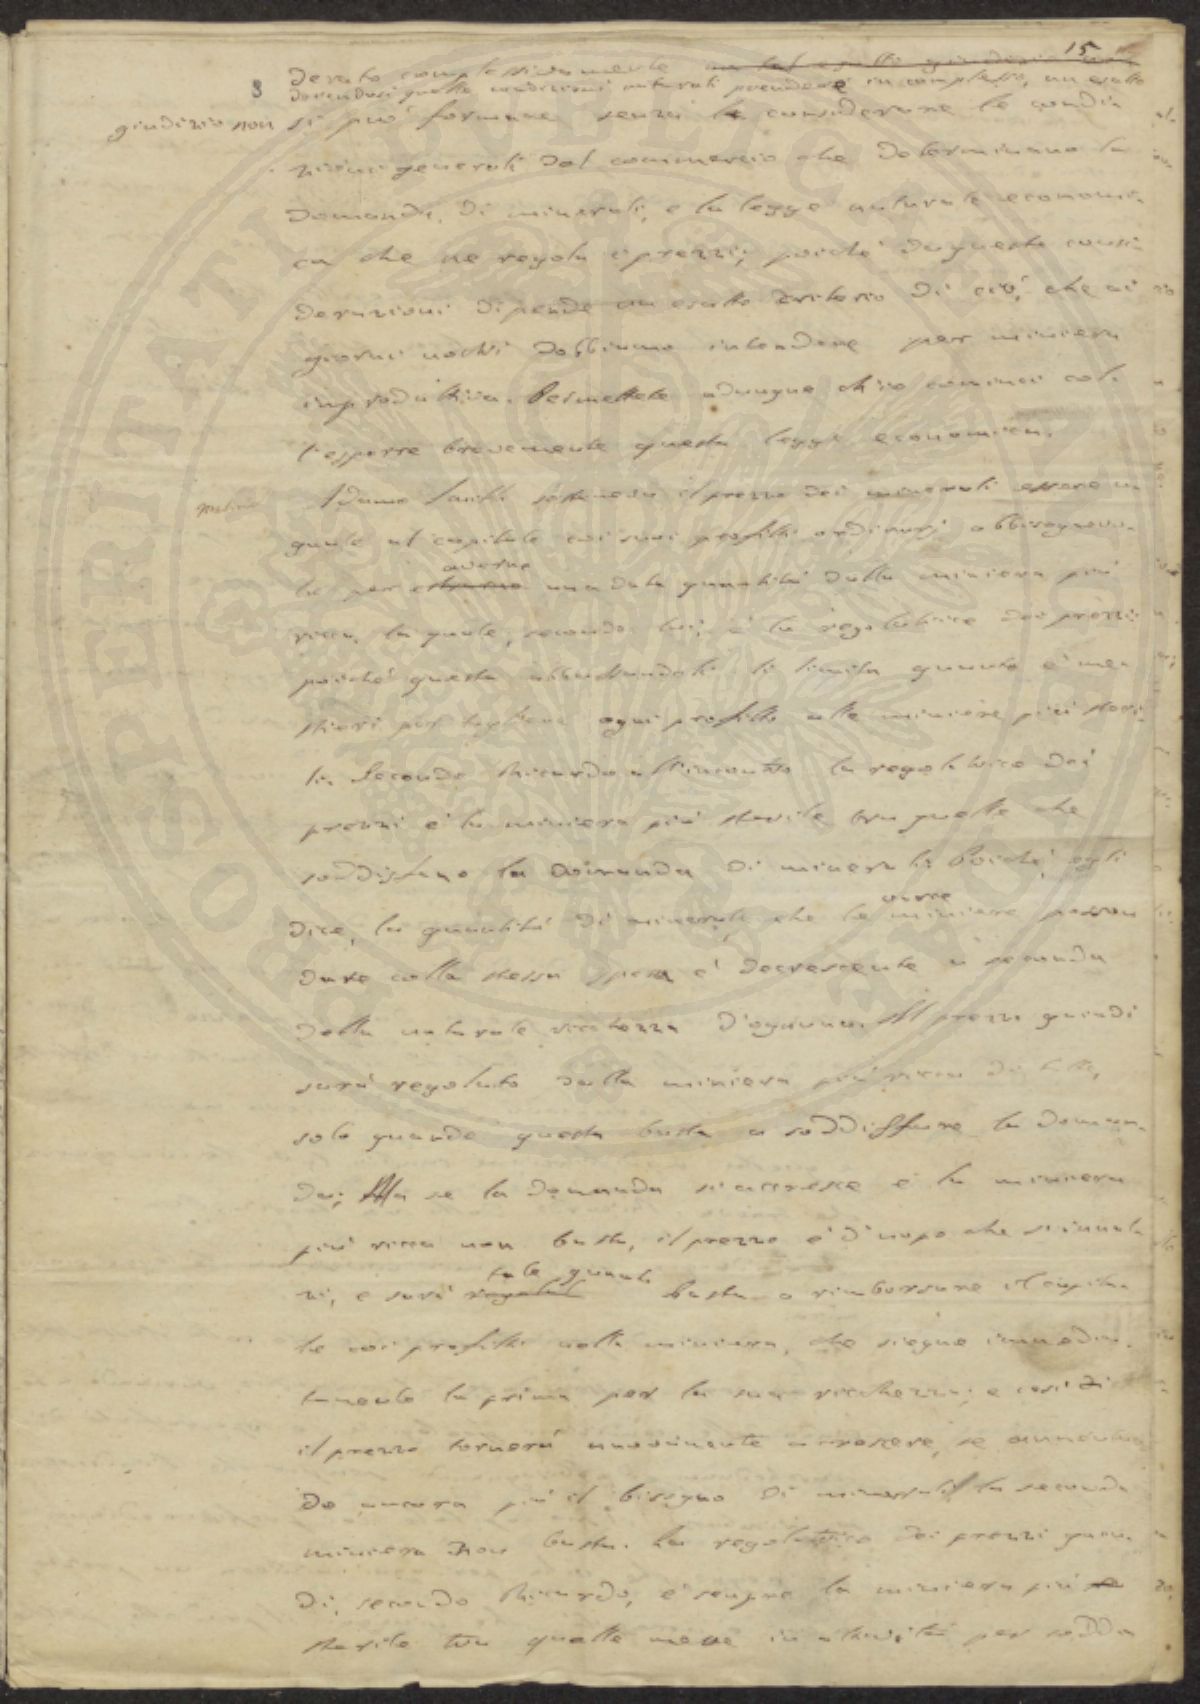 15
3
derato complessivamente un tal esatto giudizio non
dovendosi quelle condizioni naturali prendere in complesso, un esatto
giudizio non si può formare senza considerare le condi
zioni generali del commercio che determinano la
domanda di minerali, e la legge naturale economi
ca che ne regola i prezzi; poiché da queste consi
derazioni dipende un esatto criterio di ciò, che ai
giorni nostri dobbiamo intendere per miniera
improduttiva. Permettete adunque ch'io cominci col
l'esporre brevemente questa legge economica.
Adamo Smith sosteneva il prezzo dei minerali essere u
guale al capitale coi suoi profitti ordinarj abbisognevo
le per estrarne una data quantità dalla miniera più
averne
ricca, la quale, secondo lui, è la regolatrice dei prezzi:
poiché questa abbassandoli li limita quanto è me
stieri per togliere ogni profitto alle miniere più steri
li. Secondo Ricardo all'incontro la regolatrice dei
prezzi è la miniera più sterile tra quelle che
soddisfano la domanda di minerali. Poiché, egli
dice, la quantità di minerali, che le varie miniere posson
dare colla stessa spesa è decrescente a seconda
della naturale ricchezza d'ognuna. Il prezzo quindi
sarà regolato dalla miniera più ricca di tutte,
solo quando questa basta a soddisfare la doman
da; Ma se la domanda si accresce e la miniera
più ricca non basta, il prezzo è d'uopo che s'innal
zi, e sarà tale quanto basta a rimborsare il capita
le coi profitti nella miniera, che siegue immedia
tamente la prima per la sua ricchezza; e così
il prezzo tornerà nuovamente a crescere, se aumentan
do ancora più il bisogno di minerali la seconda
miniera non basta. La regolatrice dei prezzi quin
di, secondo Ricardo, è sempre la miniera più
sterile tra quelle messe in attività per sodda
PROSPERITATI PUBLICAE AUGENDAE